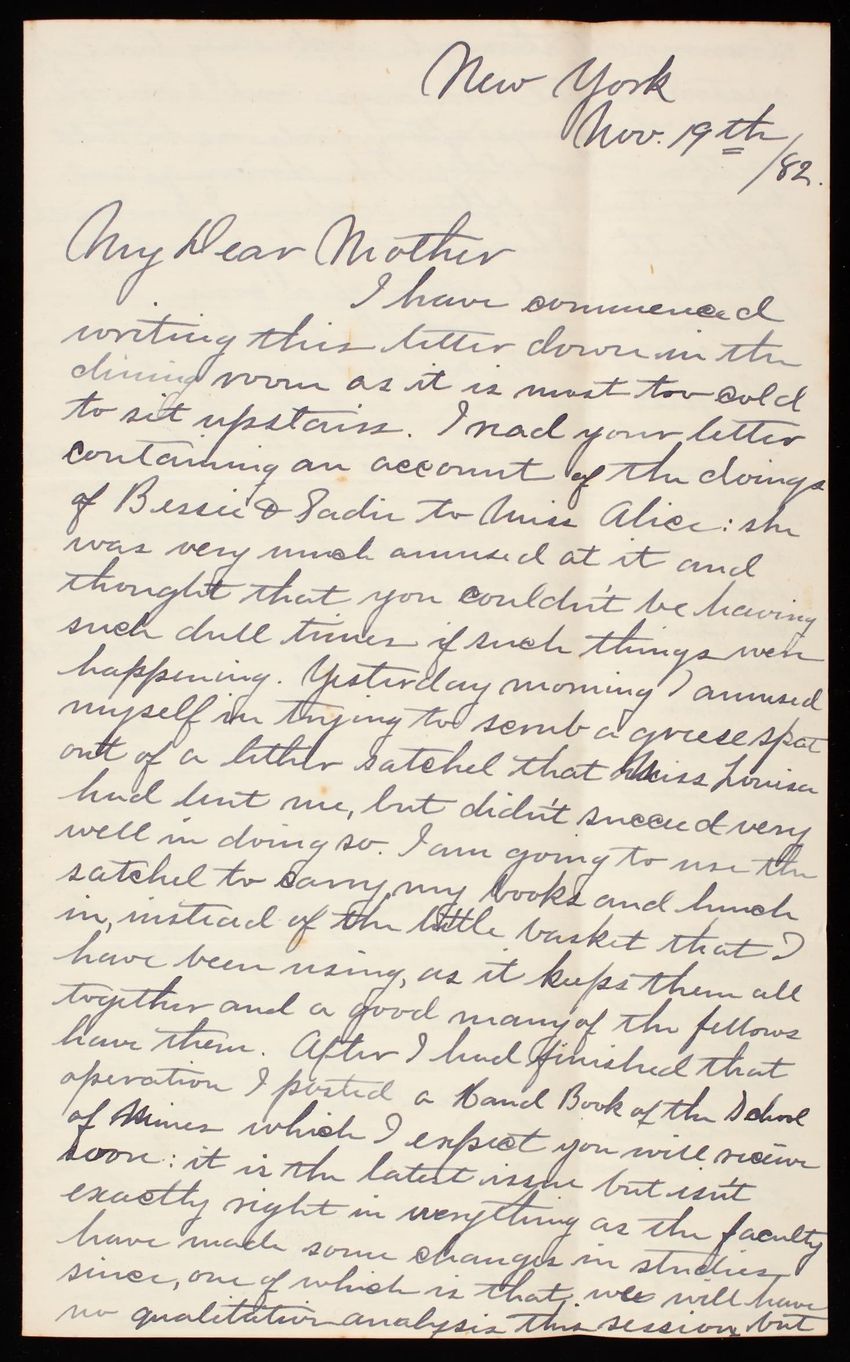 New York
Nov. 19th /82.
My Dear Mother
I have commenced
writing this letter down in the
dining room as it is most too cold
to sit upstairs. I read your letter
containing an account of the doings
of Bessie & Sadie to Miss Alice: she
was very much amused at it and
thought that you couldn't be having
such dull times if such things were
happening. Yesterday morning I amused
myself in trying to scrub a greese spot
out of a lether satchel that Miss Louisa
had lent me, but didn't succeed very
well in doing so. I am going to use the
satchel to carry my books and lunch
in, instead of the little basket that I
have been using, as it keeps them all
together and a good many of the fellows
have them. After I had finished that
operation I posted a Hand Book of the School
of Mines which I expect you will receive
soon: it is the latest issue but isn't
exactly right in everything as the faculty
have made some changes in studies
since, one of which is that, we will have
no qualitative analysis this session, but